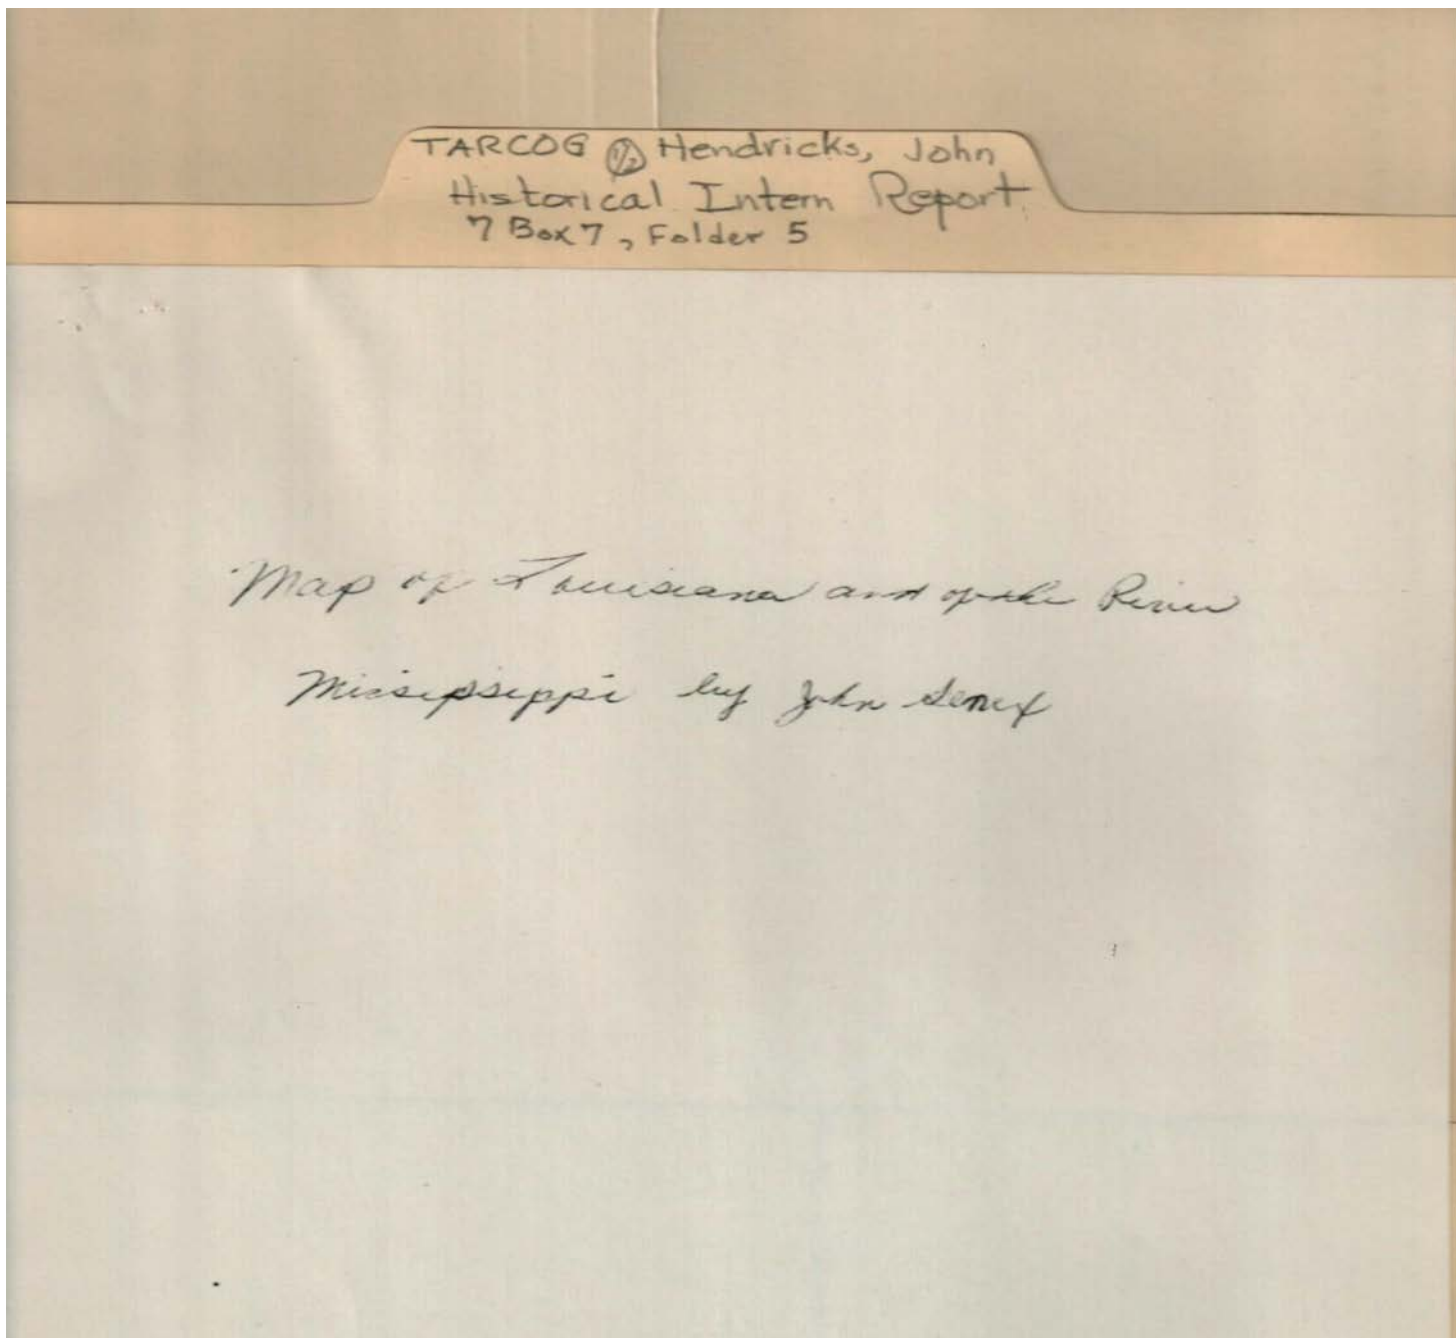 TARCOG 1/2 Hendricks, John
Historical Intern Report
7 Box 7, Folder 5
Map of Louisiana and of the River
Missipseppi by John Senex